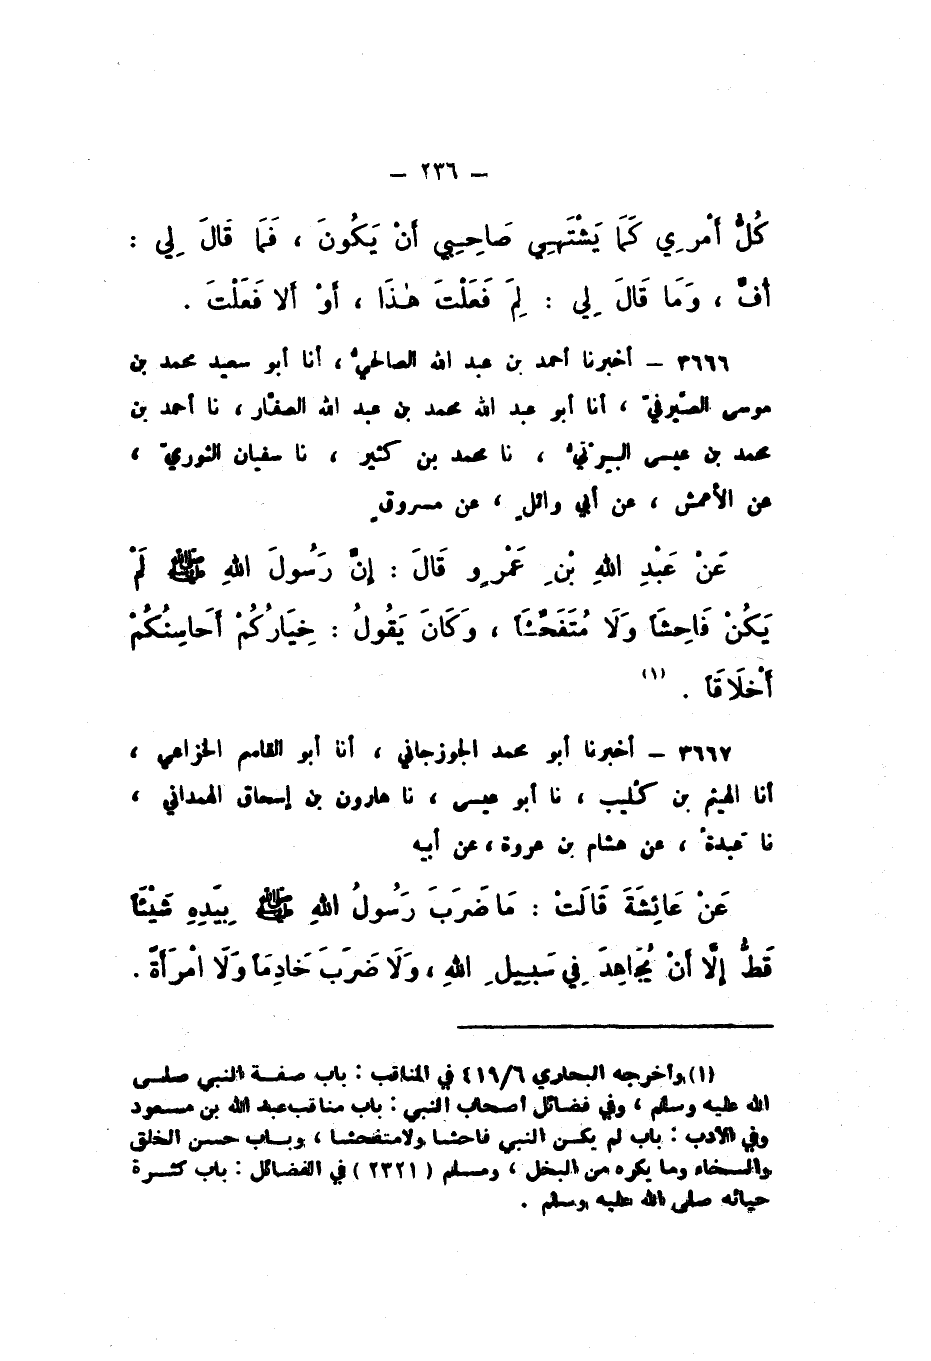 — ٢٣٦ —
كُلُّ أَمْرِي كَمَا يَشْتَهِي صَاحِبِي أَنْ يَكُونَ ، فَمَا قَالَ لِي :
أُفٍّ ، وَمَا قَالَ لِي : لِمَ فَعَلْتَ هٰذَا ، أَوْ أَلا فَعَلْتَ .
٣٦٦٦ — أخبرنا أحمد بن عبد الله الصالحيُّ ، أنا أبو سعيد محمد بن
موسى الصَّيرفيّ ، أنا أبو عبد الله محمد بن عبد الله الصفّار ، نا أحمد بن
محمد بن عيسى البِرْتيُّ ، نا محمد بن كثير ، نا سفيان الثوريّ ،
عن الأعمش ، عن أبي وائلٍ ، عن مسروقٍ
عَنْ عَبْدِ اللهِ بْنِ عَمْرٍو قَالَ : إِنَّ رَسُولَ اللهِ ﷺ لَمْ
يَكُنْ فَاحِشَاً وَلَا مُتَفَحِّشَاً ، وَكَانَ يَقُولُ : خِيَارُكُمْ أَحَاسِنُكُمْ
أَخْلَاقَاً . (١)
٣٦٦٧ — أخبرنا أبو محمد الجوزجاني ، أنا أبو القاسم الخزاعي ،
أنا الهيثم بن كُليب ، نا أبو عيسى ، نا هارون بن إسحاق الهمداني ،
نا عَبدةُ ، عن هشام بن عروة ، عن أبيه
عَنْ عَائِشَةَ قَالَتْ : مَا ضَرَبَ رَسُولُ اللهِ ﷺ بِيَدِهِ شَيْئَاً
قَطُّ إِلَّا أَنْ يُجَاهِدَ فِي سَبِيلِ اللهِ ، وَلَا ضَرَبَ خَادِمَاً وَلَا امْرَأَةً .
(١) وأخرجه البخاري ٤١٩/٦ في المناقب : باب صفة النبي صلى
الله عليه وسلم ، وفي فضائل أصحاب النبي : باب مناقب عبد الله بن مسعود
وفي الأدب : باب لم يكن النبي فاحشا ولا متفحشا ، وباب حسن الخلق
والسخاء وما يكره من البخل ، ومسلم ( ٢٣٢١ ) في الفضائل : باب كثرة
حيائه صلى الله عليه وسلم .